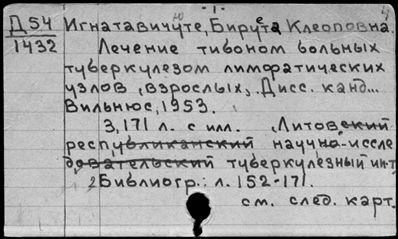 - 1 -
Д 54 Игнатавичуте, Бируте Клеоповна.
1432 Лечение тивоном больных
туберкулезом лимфатических
узлов (взрослых). Дисс. канд...
Вильнюс, 1953.
3, 171 л. с илл. (Литовский
республиканский научно-иссле
довательский туберкулезный ин-т
Библиогр.: л. 152-171.
см. след. карт.